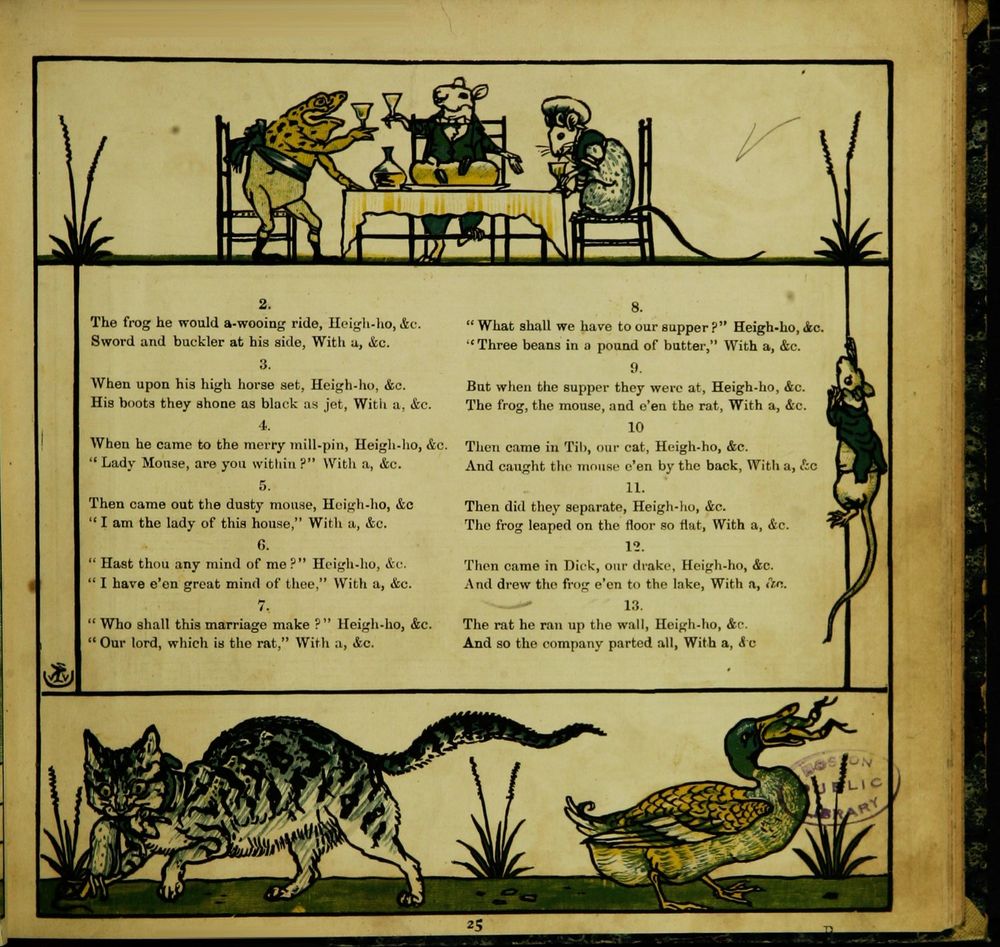 2.
The frog he would a-wooing ride, Heigh-ho, &c.
Sword and buckler at his side, With a, &c.
3.
When upon his high horse set, Heigh-ho, &c.
His boots they shone as black as jet, With a, &c.
4.
When he came to the merry mill-pin, Heigh-ho, &c.
“Lady Mouse, are you within?” With a, &c.
5.
Then came out the dusty mouse, Heigh-ho, &c
“I am the lady of this house,” With a, &c.
6.
“Hast thou any mind of me?” Heigh-ho, &c.
“I have e’en great mind of thee,” With a, &c.
7.
“Who shall this marriage make?” Heigh-ho, &c.
“Our lord, which is the rat,” With a, &c.
8.
“What shall we have to our supper?” Heigh-ho, &c.
“Three beans in a pound of butter,” With a, &c.
9.
But when the supper they were at, Heigh-ho, &c.
The frog, the mouse, and e’en the rat, With a, &c.
10
Then came in Tib, our cat, Heigh-ho, &c.
And caught the mouse e’en by the back, With a, &c
11.
Then did they separate, Heigh-ho, &c.
The frog leaped on the floor so flat, With a, &c.
12.
Then came in Dick, our drake, Heigh-ho, &c.
And drew the frog e’en to the lake, With a, &c.
13.
The rat he ran up the wall, Heigh-ho, &c.
And so the company parted all, With a, &c
BOSTON
PUBLIC
LIBRARY
25